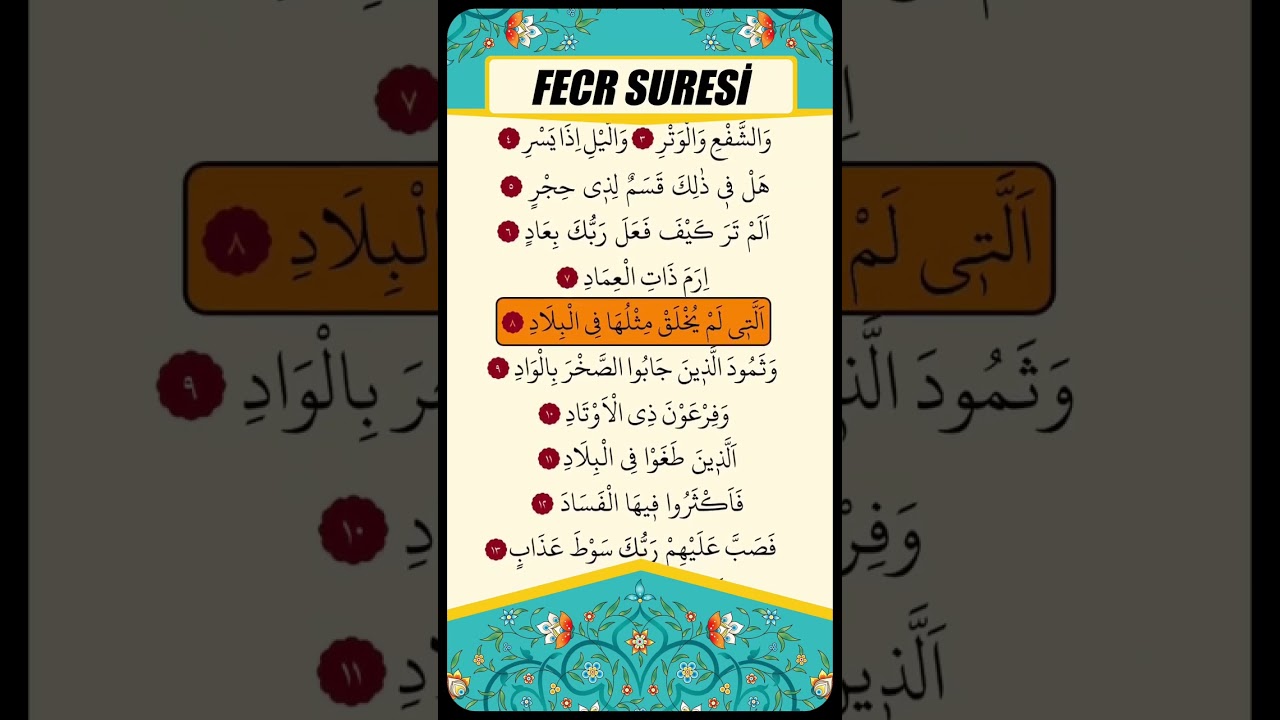 FECR SURESİ
وَالشَّفْعِ وَالْوَتْرِ ٣ وَالَّيْلِ اِذَا يَسْرِ ٤
هَلْ ف۪ي ذٰلِكَ قَسَمٌ لِذ۪ي حِجْرٍ ٥
اَلَمْ تَرَ كَيْفَ فَعَلَ رَبُّكَ بِعَادٍ ٦
اِرَمَ ذَاتِ الْعِمَادِ ٧
اَلَّت۪ي لَمْ يُخْلَقْ مِثْلُهَا فِي الْبِلَادِ ٨
وَثَمُودَ الَّذ۪ينَ جَابُوا الصَّخْرَ بِالْوَادِ ٩
وَفِرْعَوْنَ ذِي الْاَوْتَادِ ١٠
اَلَّذ۪ينَ طَغَوْا فِي الْبِلَادِ ١١
فَاَكْثَرُوا ف۪يهَا الْفَسَادَ ١٢
فَصَبَّ عَلَيْهِمْ رَبُّكَ سَوْطَ عَذَابٍ ١٣